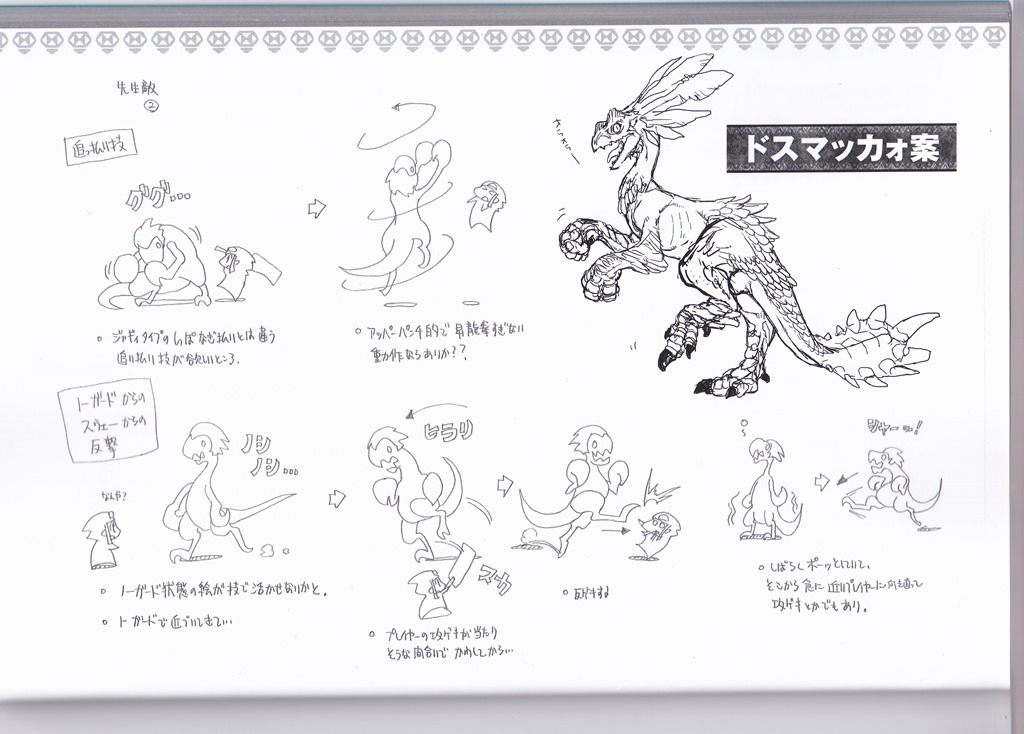 先生敵
②
ドスマッカォ案
追っ払い技
グググ...
。ジャギィタイプのしっぽなぎ払いとは違う
追い払い技が欲しいところ.
。アッパーパンチ的で昇龍拳すぎない
動作ならありか??
ノーガードからの
スウェーからの
反撃
なんや?
ノシ
ノシ...
ヒラリ
スカ
シャーッ!
。ノーガード状態の絵が技で活かせないかと。
。ノーガードで近づいてきて...
。プレイヤーの攻ゲキが当たり
そうな間合いでかわしてから...
。反ゲキする
。しばらくボーッとしていて、
そこから急に近いプレイヤーに向き直って
攻ゲキとかでもあり。